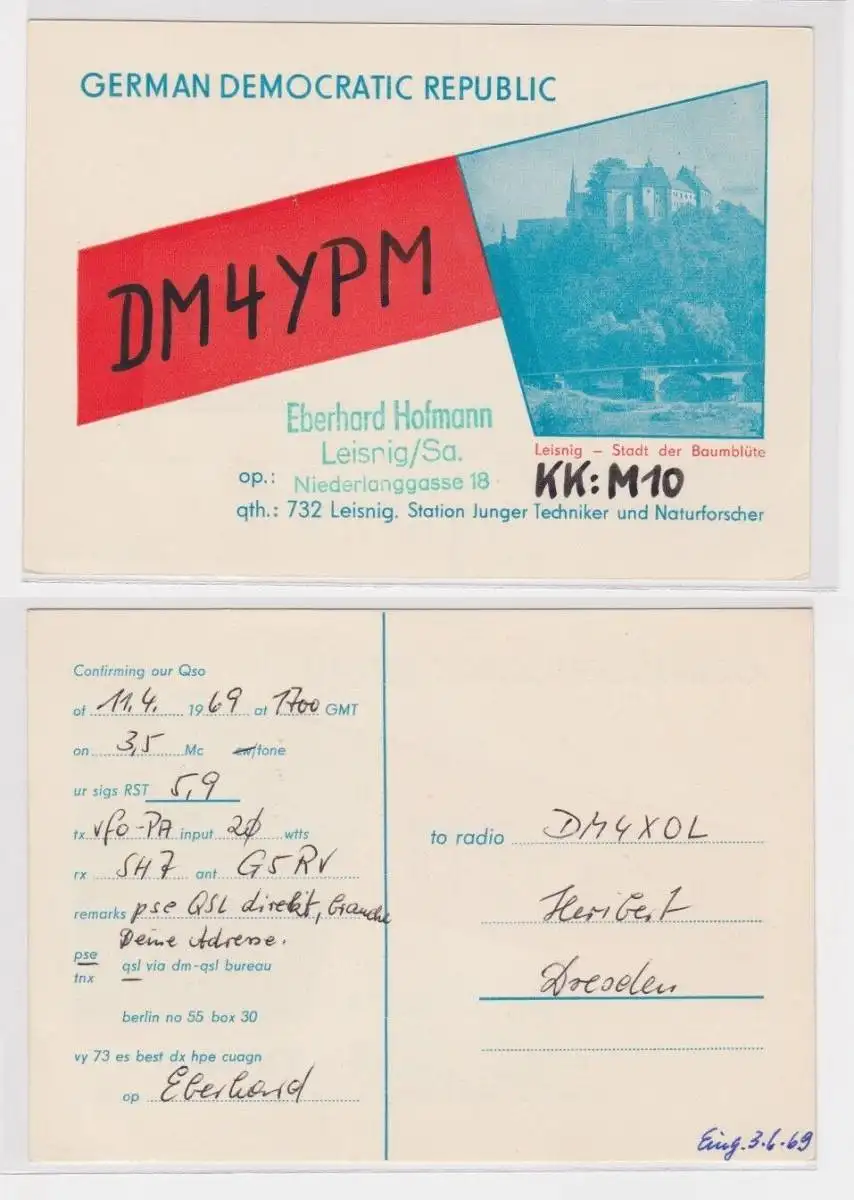 GERMAN DEMOCRATIC REPUBLIC
DM4YPM
Eberhard Hofmann
Leisnig/Sa.
op.: Niederlanggasse 18
Leisnig – Stadt der Baumblüte
KK: M10
qth.: 732 Leisnig. Station Junger Techniker und Naturforscher
Confirming our Qso
of 11.4. 1969 at 1700 GMT
on 3,5 Mc cw/fone
ur sigs RST 5,9
tx vfo-PA input 20 wtts
rx SH7 ant G5RV
remarks pse QSL direkt, brauche
Deine Adresse.
pse qsl via dm-qsl bureau
tnx
berlin no 55 box 30
vy 73 es best dx hpe cuagn
op Eberhard
to radio DM4XOL
Heribert
Dresden
Eing. 3.6.69